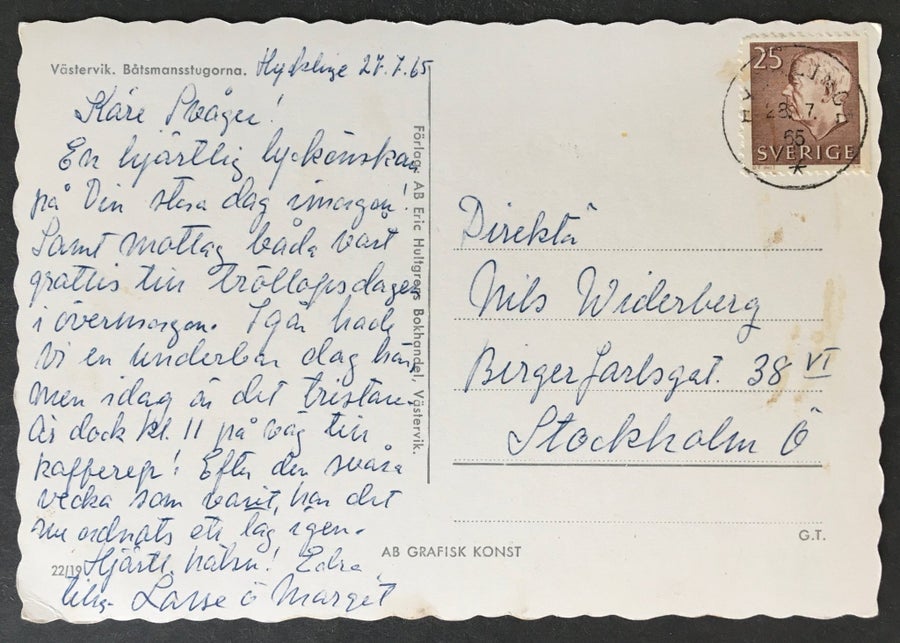 Västervik. Båtsmansstugorna. Hycklinge 27.7.65
Käre Svåger!
En hjärtlig lyckönskan
på Din stora dag imorgon!
Samt mottag båda vårt
grattis till bröllopsdagen
i övermorgon. Igår hade
vi en underbar dag här
men idag är det tristare.
Är dock kl. 11 på väg till
kafferep! Efter den svåra
vecka som varit, har det
nu ordnats ett lag igen.
Hjärtl. häln! Edra
22/19
Lasse o Margit
Förlag: AB Eric Hultgrens Bokhandel, Västervik.
AB GRAFISK KONST
25
SVERIGE
28. 7.
65
*
Direktö
Nils Widerberg
Birger Jarlsgat. 38 VI
Stockholm Ö
G.T.